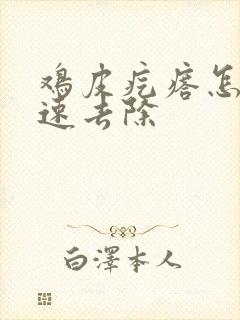 鸡皮疙瘩怎
速去除
白澤本人